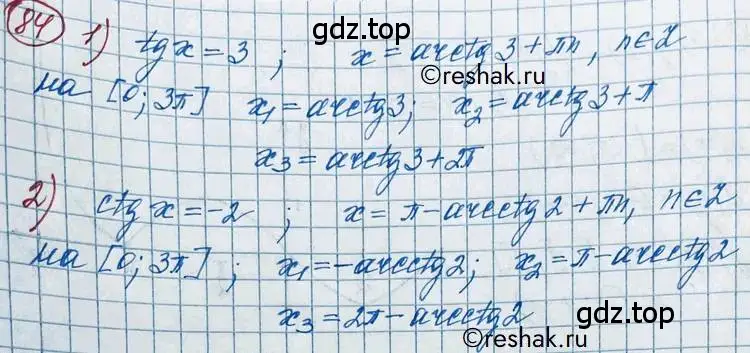 gdz.top
84 1) tg x = 3 ; x = arctg 3 + πn, n∈Z
©reshak.ru
на [0; 3π] x₁ = arctg 3; x₂ = arctg 3 + π
x₃ = arctg 3 + 2π
2) ctg x = -2 ; x = π - arcctg 2 + πn, n∈Z
на [0; 3π] ; x₁ = -arcctg 2; x₂ = π - arcctg 2
x₃ = 2π - arcctg 2
gdz.top
©reshak.ru